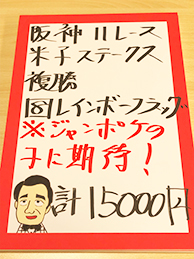 阪神11レース
米子ステークス
複勝
⑪レインボーフラッグ
※ジャンポケの
子に期待！
計15000円